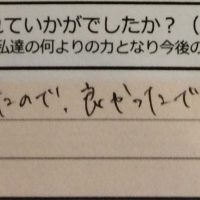 れていかがでしたか？（
私達の何よりの力となり今後の
たので、良かったで